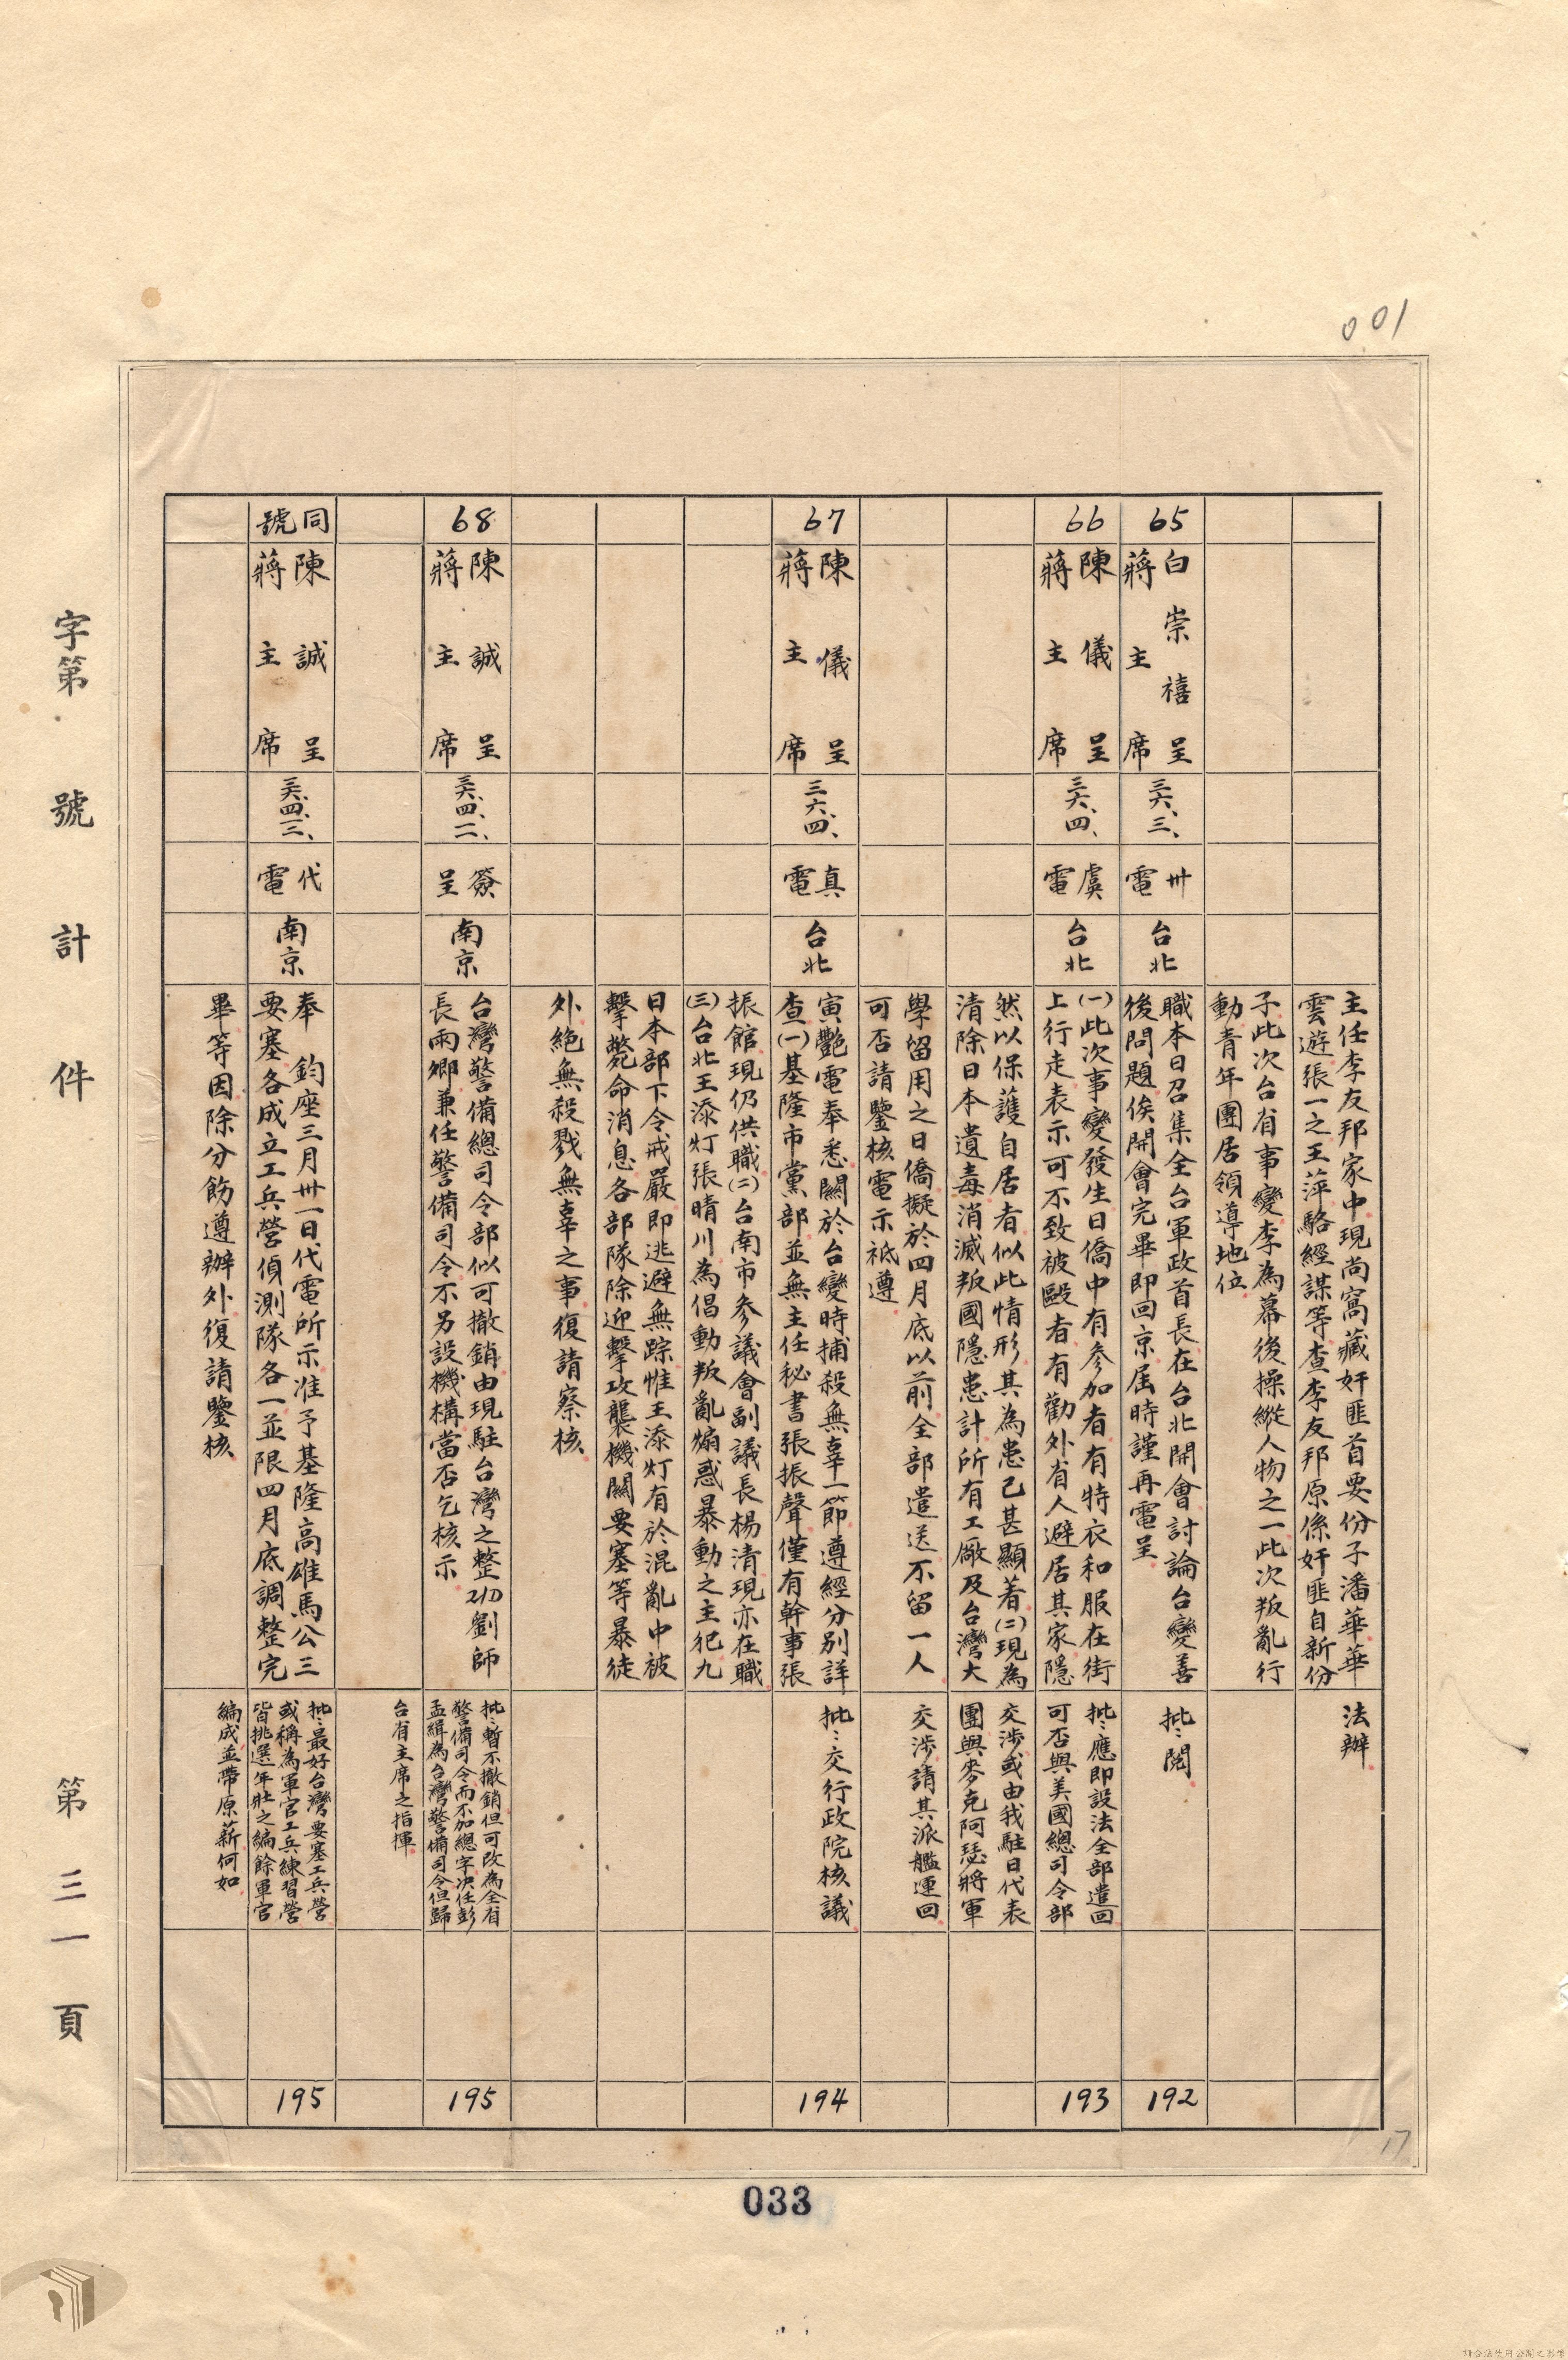 001
主任李友邦家中現尚窩藏奸匪首要份子潘華華
雲遊張一之王萍駱經謀等查李友邦原係奸匪自新份
子此次台省事變李為幕後操縱人物之一此次叛亂行
動青年團居領導地位
法辦
65
白崇禧呈
蔣主席
三六、三、
卅電
台北
職本日召集全台軍政首長在台北開會討論台變善
後問題俟開會完畢即回京屆時謹再電呈
批：閱
192
66
陳儀呈
蔣主席
三六、四、
虞電
台北
(一)此次事變發生日僑中有參加者有特衣和服在街
上行走表示可不致被毆者有勸外省人避居其家隱
然以保護自居者似此情形其為患已甚顯著(二)現為
清除日本遺毒消滅叛國隱患計所有工廠及台灣大
學留用之日僑擬於四月底以前全部遣送不留一人
可否請鑒核電示祗遵
批：應即設法全部遣回
可否與美國總司令部
交涉或由我駐日代表
團與麥克阿瑟將軍
交涉請其派艦運回
193
67
陳儀呈
蔣主席
三六、四、
真電
台北
寅艷電奉悉關於台變時捕殺無辜一節遵經分別詳
查(一)基隆市黨部並無主任秘書張振聲僅有幹事張
振館現仍供職(二)台南市參議會副議長楊清現亦在職
(三)台北王添灯張晴川為倡動叛亂煽惑暴動之主犯九
日本部下令戒嚴即逃避無踪惟王添灯有於混亂中被
擊斃命消息各部隊除迎擊攻襲機關要塞等暴徒
外絕無殺戮無辜之事復請察核
批：交行政院核議
194
68
陳誠呈
蔣主席
三六、四、二、
簽呈
南京
台灣警備總司令部似可撤銷由現駐台灣之整21D劉師
長雨卿兼任警備司令不另設機構當否乞核示
批：暫不撤銷但可改為全省
警備司令而不加總字決任彭
孟緝為台灣警備司令但歸
台省主席之指揮
195
同號
陳誠呈
蔣主席
三六、四、三、
代電
南京
奉 鈞座三月卅一日代電所示准予基隆高雄馬公三
要塞各成立工兵營偵測隊各一並限四月底調整完
畢等因除分飭遵辦外復請鑒核
批：最好台灣要塞工兵營
或稱為軍官工兵練習營
皆挑選年壯之編餘軍官
編成並帶原薪何如
195
字第 號 計 件 第三一頁
17
033
請合法使用公開之影像